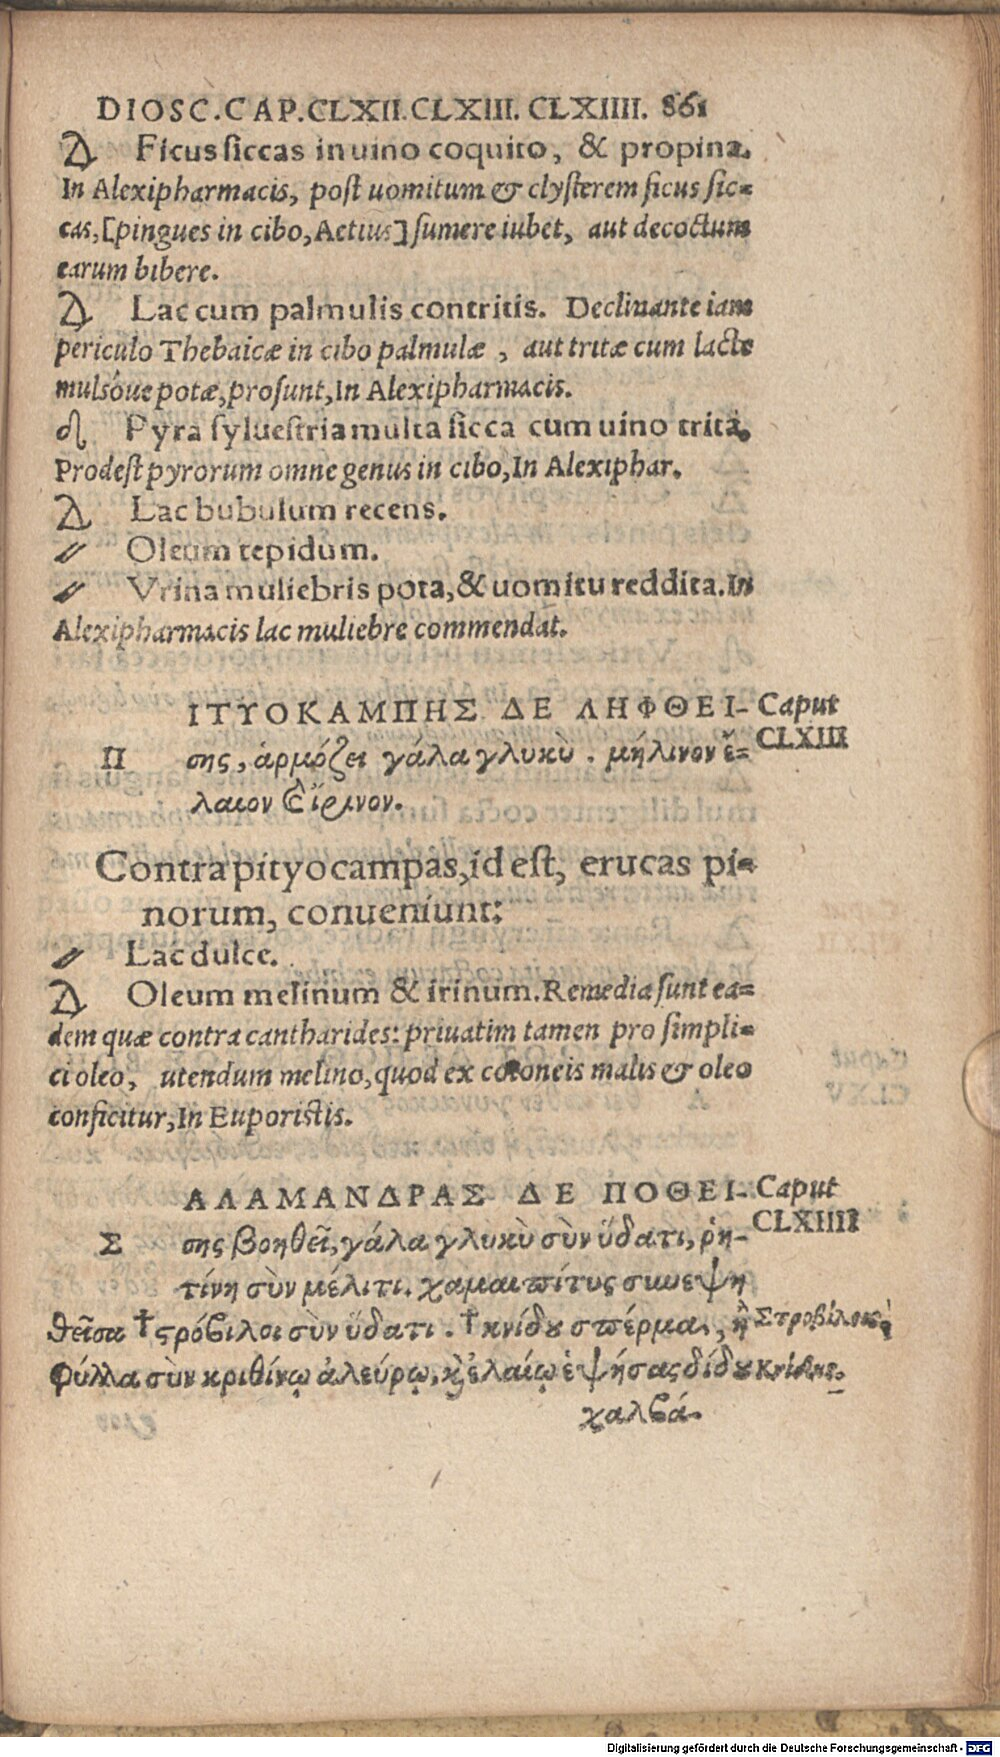 DIOSC. CAP. CLXII. CLXIII. CLXIIII. 861
Ficus siccas in uino coquito, & propina.
In Alexipharmacis, post uomitum & clysterem ficus sic=
cas, [pingues in cibo, Aetius] sumere iubet, aut decoctum
earum bibere.
Lac cum palmulis contritis. Declinante iam
periculo Thebaicæ in cibo palmulæ, aut tritæ cum lacte
mulsóue potæ, prosunt, In Alexipharmacis.
Pyra syluestria multa sicca cum uino trita.
Prodest pyrorum omne genus in cibo, In Alexiphar.
Lac bubulum recens.
Oleum tepidum.
Vrina muliebris pota, & uomitu reddita. In
Alexipharmacis lac muliebre commendat.
ΙΤΥΟΚΑΜΠΗΣ ΔΕ ΛΗΦΘΕΙ- Caput
CLXIII
Π σης, ἁρμόζει γάλα γλυκὺ. μήλινον ἔ=
λαιον ϗ ἴρινον.
Contra pityocampas, id est, erucas pi=
norum, conueniunt:
Lac dulce.
Oleum melinum & irinum. Remedia sunt ea=
dem quæ contra cantharides: priuatim tamen pro simpli=
ci oleo, utendum melino, quod ex cotoneis malis & oleo
conficitur, In Euporistis.
ΑΛΑΜΑΝΔΡΑΣ ΔΕ ΠΟΘΕΙ- Caput
CLXIIII
Σ σης βοηθεῖ, γάλα γλυκὺ σὺν ὕδατι, ῥη-
τίνη σὺν μέλιτι. χαμαιπίτυς συνεψη
θεῖσα †ςρόβιλοι σὺν ὕδατι. †κνίδου σπέρμα, ἢ Στροβίλοις
φύλλα σὺν κριθίνῳ ἀλεύρῳ. ϗ ἐλαίῳ ἑψήσας δίδου Κνίδης.
χαλβά-